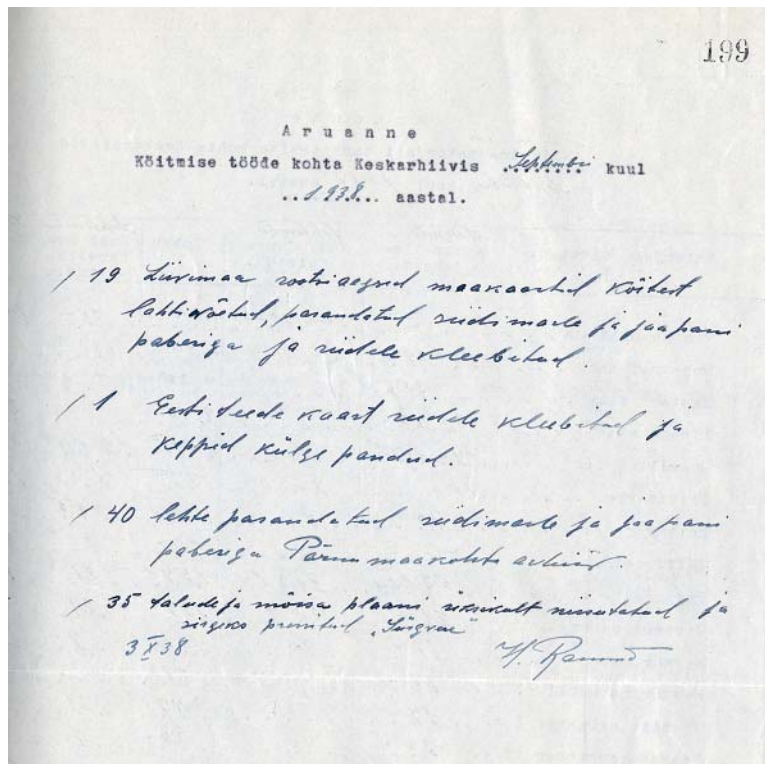 199
Aruanne
Köitmise tööde kohta Keskarhiivis Septembri kuul
1938 aastal.
/ 19 Liivimaa rootsiaegsed maakaartid köitest
lahtivõetud, parandatud siidimarle ja jaapani
paberiga ja riidele kleebitud.
/ 1 Eesti teede kaart riidele kleebitud ja
keppid külge pandud.
/ 40 lehte parandatud siidimarle ja jaapani
paberiga Pärnu maakohtu arhiiv.
/ 35 talude ja mõisa plaani üksikult niisutatud ja
sirgeks pressitud
3 X 38